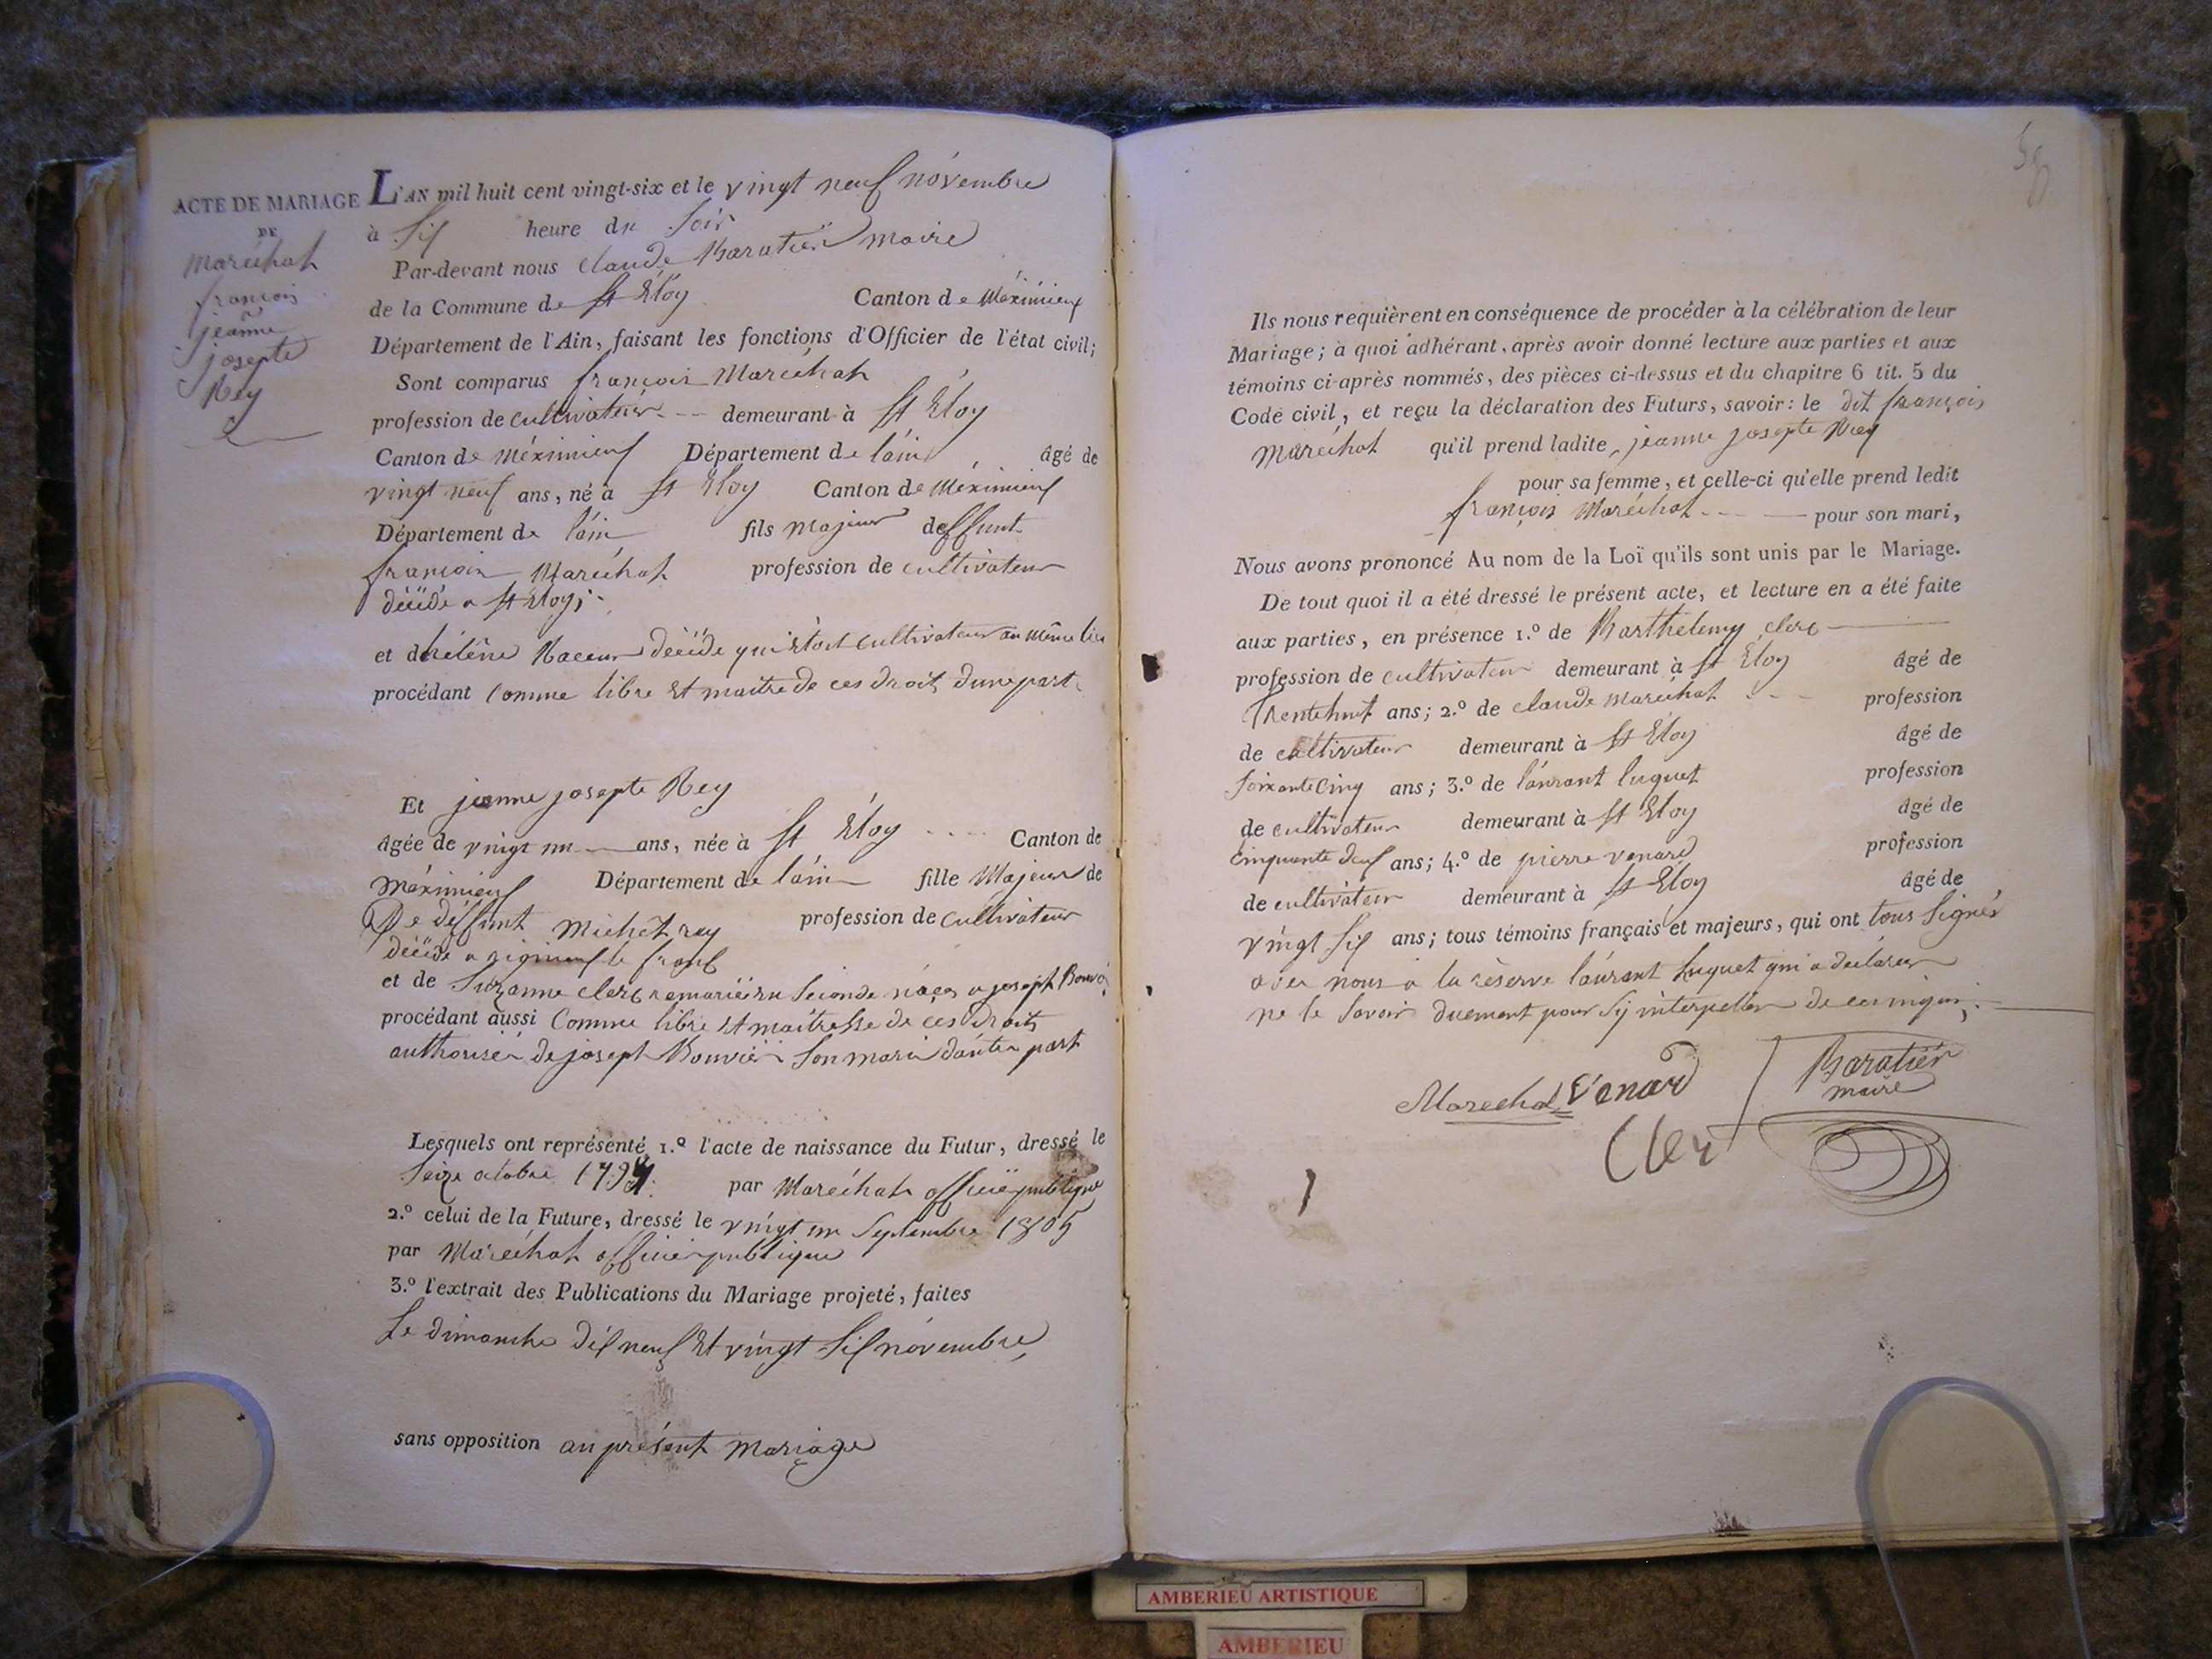 ACTE DE MARIAGE
DE
Maréchat
françois
jeanne
josepte
Rey
L'AN mil huit cent vingt-six et le vingt neuf novembre
à Six heure du Soir
Par-devant nous Claude Baratier maire
de la Commune de St Eloy Canton de Méximieux
Département de l'Ain, faisant les fonctions d'Officier de l'état civil;
Sont comparus françois Maréchat
profession de cultivateur demeurant à St Eloy
Canton de Méximieux Département de l'ain âgé de
vingt neuf ans, né à St Eloy Canton de Méximieux
Département de l'ain fils majeur deffunt
françois Maréchat profession de cultivateur
décédé a St Eloy;
et d'héléne décédé qui étoit cultivateur au même lieu
procédant comme libre et maitre de ces droit d'une part
Et jeanne josepte Rey
âgée de vingt un ans, née à St Eloy Canton de
Méximieux Département de l'ain fille Majeur de
De deffunt Michet rey profession de cultivateur
décédé a le franc
et de Suzanne clerc remariée en seconde a joseph Bouvié
procédant aussi Comme libre et maitresse de ces droits
authorisée de joseph Bouvier son mari d'autre part
Lesquels ont représenté, 1.º l'acte de naissance du Futur, dressé le
Seize octobre par Maréchat officié publique
2.º celui de la Future, dressé le vingt un Septembre 1805
par Maréchat officier publique
3.º l'extrait des Publications du Mariage projeté, faites
Le dimanche dix neuf et vingt six novembre
sans opposition au présent mariage
Ils nous requièrent en conséquence de procéder à la célébration de leur
Mariage; à quoi adhérant, après avoir donné lecture aux parties et aux
témoins ci-après nommés, des pièces ci-dessus et du chapitre 6 tit. 5 du
Code civil, et reçu la déclaration des Futurs, savoir: le dit françois
Maréchat qu'il prend ladite jeanne josepte Rey
pour sa femme, et celle-ci qu'elle prend ledit
françois Maréchat pour son mari,
Nous avons prononcé Au nom de la Loï qu'ils sont unis par le Mariage.
De tout quoi il a été dressé le présent acte, et lecture en a été faite
aux parties, en présence 1.º de Barthelemy clerc
profession de cultivateur demeurant à St Eloy âgé de
Trente huit ans; 2.º de claude Maréchat profession
de cultivateur demeurant à St Eloy âgé de
soixante cinq ans; 3.º de laurant luquet profession
de cultivateur demeurant à St Eloy âgé de
cinquante deux ans; 4.º de pierre venard profession
de cultivateur demeurant à St Eloy âgé de
vingt six ans; tous témoins français et majeurs, qui ont tous signés
avec nous a la réserve laurant Luquet qui a déclarer
ne le savoir duement pour
Marechal Venard Baratier
maire
Clerc
AMBERIEU ARTISTIQUE
AMBERIEU